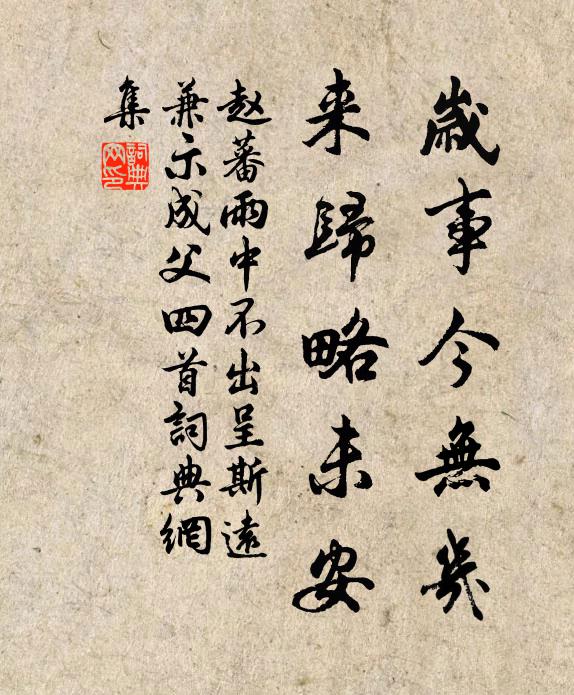 歲事今無幾
来歸略未安
赵蕃雨中不出呈斯遠
兼示成父四首詞典網
集
詞典
网印